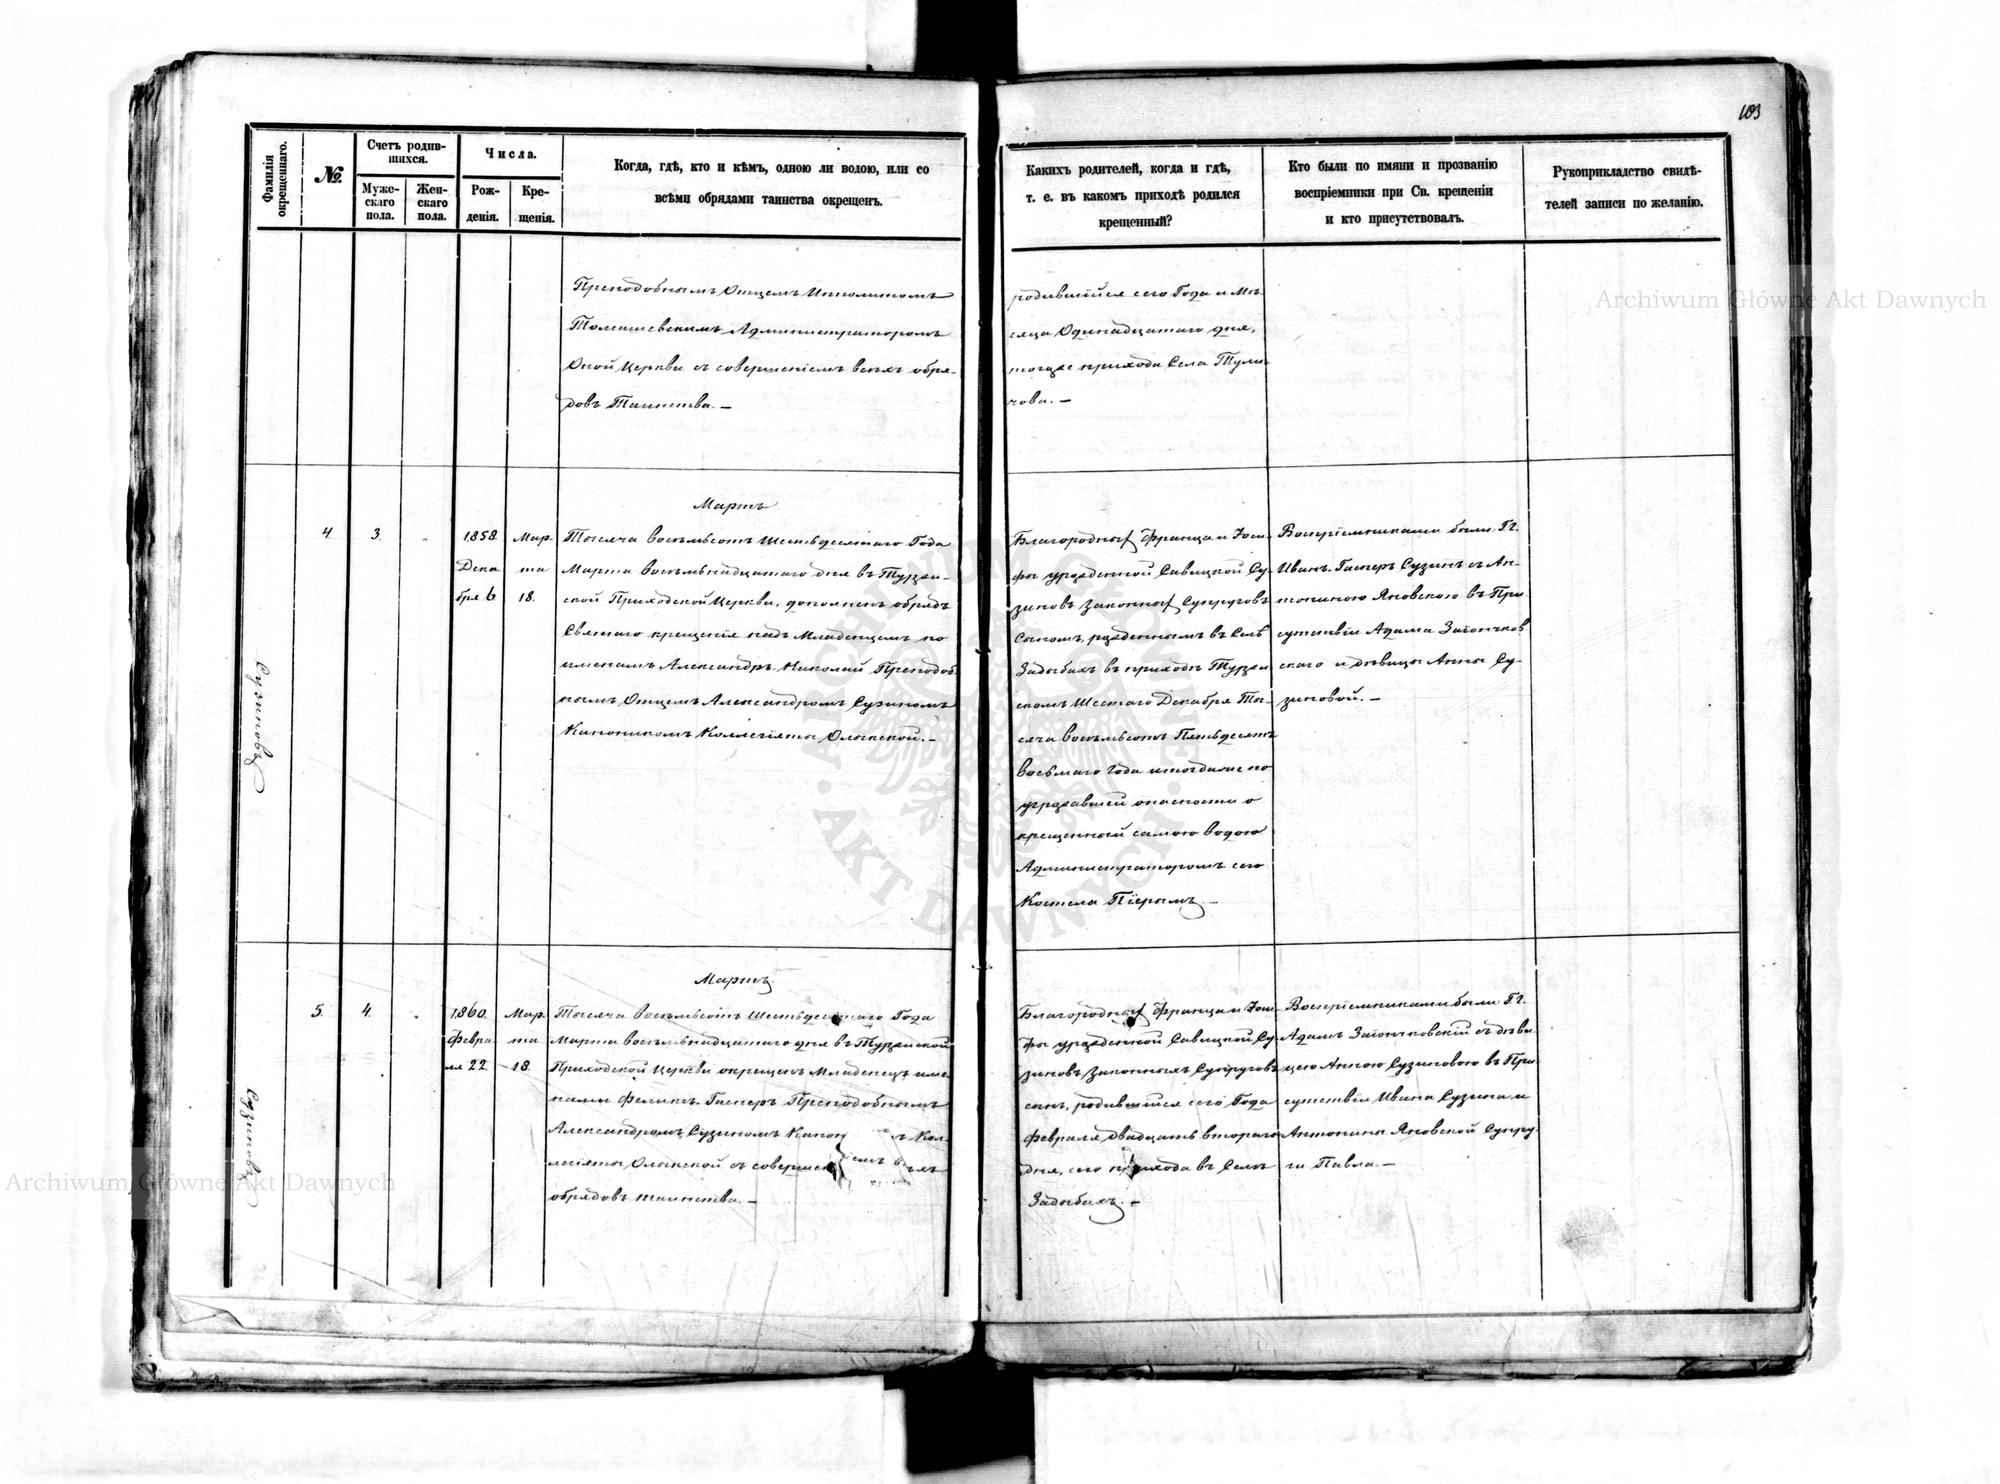 103
Фамилія окрещеннаго.
№.
Счетъ родив-
шихся.
Муже-
скаго
пола.
Жен-
скаго
пола.
Числа.
Рож-
денія.
Кре-
щенія.
Когда, гдѣ, кто и кѣмъ, одною ли водою, или со
всѣми обрядами таинства окрещенъ.
Какихъ родителей, когда и гдѣ,
т. е. въ какомъ приходѣ родился
крещенный?
Кто были по имяни и прозванію
воспріемники при Св. крещеніи
и кто присутствовалъ.
Рукоприкладство свидѣ-
телей записи по желанію.
Преподобнымъ Отцемъ Ипполитомъ
Томашевскимъ Администраторомъ
Оной Церкви съ совершеніемъ всѣхъ обря-
довъ Таинства. —
родившійся сего Года и Мѣ-
сяца Одинадцатаго дня,
тогоже прихода Села Тули-
чова. —
Сузиновъ
4
3.
1858.
Дека
бря 6
Мар-
та
18.
Мартъ
Тысяча восѣмьсотъ Шестьдесятаго Года
Марта восѣмьнадцатаго дня въ Турзы-
ской Приходской Церкви, дополненъ обрядъ
Святаго крещенія надъ Младенцемъ по
именамъ Александръ-Николай Преподоб-
нымъ Отцемъ Александромъ Сузиномъ
Каноникомъ Коллегіяты Олыкской. —
Благородныхъ Франца и Іози-
фы урожденной Савицкой Су-
зиновъ Законныхъ Супруговъ
Сыномъ, рожденнымъ въ Селѣ
Задыбахъ въ приходѣ Турзы-
скомъ Шестаго Декабря Ты-
сяча восѣмьсотъ Пятьдесятъ
восьмаго Года и тогда же по
угрожавшей опасности о
крещенный самою водою
Администраторомъ сего
Костела
Воспріемниками были: Гг.
Иванъ-Гасперъ Сузинъ съ Ан-
тониною Яновскою въ При-
сутствіи Адама Заіончков
скаго и дѣвицы Анны Су-
зиновой. —
Сузиновъ
5.
4.
1860.
Февра-
ля 22.
Мар-
та
18.
Мартъ.
Тысяча восѣмьсотъ Шестьдесятаго Года
Марта восѣмьнадцатаго дня въ Турзыской
Приходской Церкви окрещенъ Младенецъ име-
нами Феликсъ-Гасперъ Преподобнымъ
Александромъ Сузиномъ Канон ъ Кол-
легіяты Олыкской съ соверше емъ всѣхъ
обрядовъ таинства. —
Благородныхъ Франца и Іози-
фы урожденной Савицкой Су-
зиновъ Законныхъ Супруговъ
сынъ, родившійся сего Года
Февраля двадцать втораго
дня, сего прихода въ Селѣ
Задыбахъ. —
Воспріемниками были Гг.
Адамъ Заіончковскій съ дѣви-
цею Анною Сузиновою въ При-
сутствіи Ивана Сузина и
Антонины Яновской Супру-
ги Павла. —
Archiwum Główne Akt Dawnych
Archiwum Główne Akt Dawnych
ARCHIWUM GŁÓWNE · AKT DAWNYCH ·